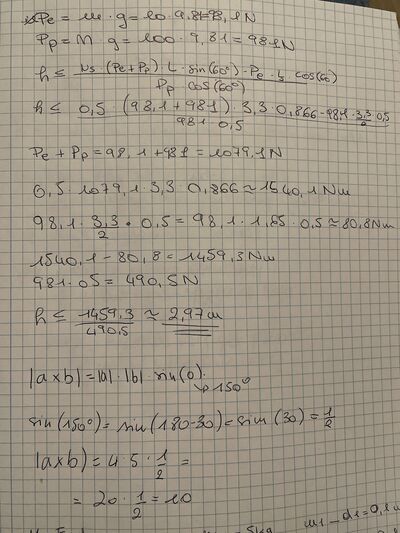 Pe = m · g = 10 · 9.81 = 98,1N
Pp = M · g = 100 · 9,81 = 981N
h ≤ Ns · (Pe+Pp) · L · sin(60°) - Pe · L/2 cos(60) / Pp cos(60°)
h ≤ 0,5 · (98,1 + 981) · 3,3 · 0,866 - 98,1 · 3,3/2 · 0,5 / 981 · 0,5
Pe + Pp = 98,1 + 981 = 1079,1N
0,5 · 1079,1 · 3,3 · 0,866 ≈ 1540,1 Nm
98,1 · 3,3/2 · 0,5 = 98,1 · 1,65 · 0,5 ≈ 80,8Nm
1540,1 - 80,8 = 1459,3 Nm
981 · 05 = 490,5 N
h ≤ 1459,3/490,5 ≈ 2,97m
|axb| = |a| · |b| · sin(0)
↳ 150°
sin(150°) = sin(180-30) = sin(30) = 1/2
|axb| = 4 · 5 · 1/2 =
= 20 · 1/2 = 10